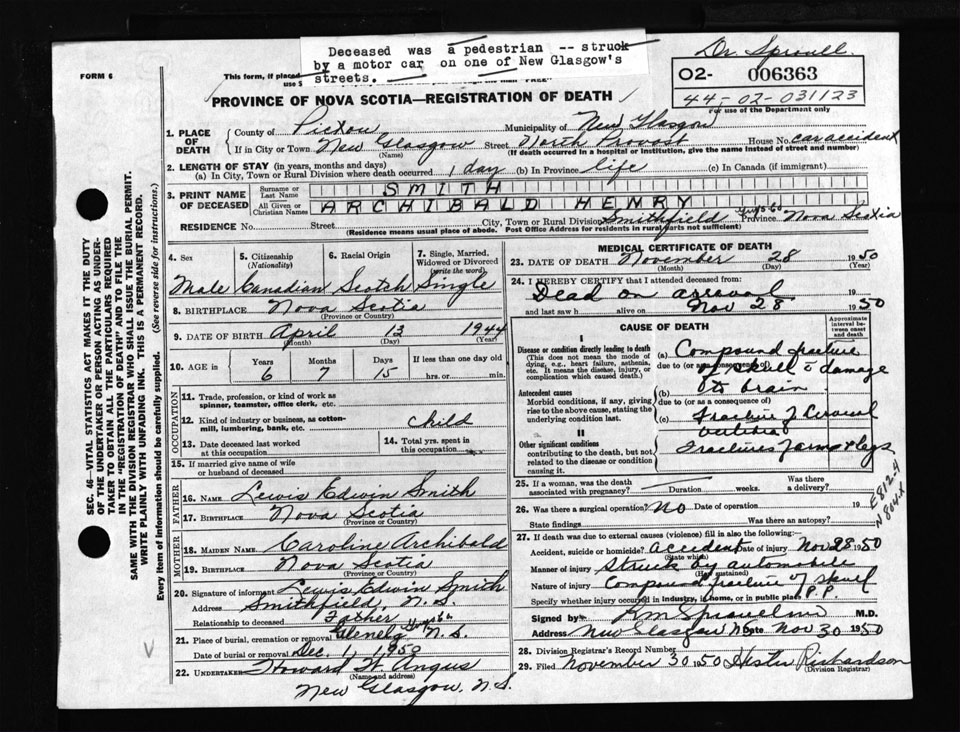 Deceased was a pedestrian -- struck
by a motor car on one of New Glasgow's
streets.
Dr. Sproull.
FORM 6
This form, if placed
PROVINCE OF NOVA SCOTIA—REGISTRATION OF DEATH
O2- 006363
44-02-031123
For use of the Department only
1. PLACE OF DEATH
County of Pictou Municipality of New Glasgow
If in City or Town New Glasgow Street North Provost House No. car accident
(Name) (If death occurred in a hospital or institution, give the name instead of street and number)
2. LENGTH OF STAY (in years, months and days)
(a) In City, Town or Rural Division where death occurred 1 day (b) In Province life (c) In Canada (if immigrant)
3. PRINT NAME OF DECEASED
Surname or Last Name SMITH
All Given or Christian Names ARCHIBALD HENRY
RESIDENCE No. Street City, Town or Rural Division Smithfield Guys Co Province Nova Scotia
(Residence means usual place of abode. Post Office Address for residents in rural parts not sufficient)
4. Sex 5. Citizenship (Nationality) 6. Racial Origin 7. Single, Married, Widowed or Divorced (write the word)
Male Canadian Scotch Single
8. BIRTHPLACE Nova Scotia
(Province or Country)
9. DATE OF BIRTH April 13 1944
(Month) (Day) (Year)
10. AGE in Years Months Days If less than one day old
6 7 15 hrs. or min.
OCCUPATION
11. Trade, profession, or kind of work as spinner, teamster, office clerk, etc.
12. Kind of industry or business, as cotton-mill, lumbering, bank, etc. child
13. Date deceased last worked at this occupation
14. Total yrs. spent in this occupation
15. If married give name of wife or husband of deceased
FATHER
16. NAME Lewis Edwin Smith
17. BIRTHPLACE Nova Scotia
(Province or Country)
MOTHER
18. MAIDEN NAME Caroline Archibald
19. BIRTHPLACE Nova Scotia
(Province or Country)
20. Signature of informant Lewis Edwin Smith
Address Smithfield, N.S.
Relationship to deceased Father
21. Place of burial, cremation or removal Glenelg Guys Co N.S.
Date of burial or removal Dec. 1, 1950
22. UNDERTAKER Howard W. Angus
(Name and address)
New Glasgow, N.S.
MEDICAL CERTIFICATE OF DEATH
23. DATE OF DEATH November 28 1950
(Month) (Day) (Year)
24. I HEREBY CERTIFY that I attended deceased from:
Dead on arrival 19
and last saw h alive on Nov 28 1950
CAUSE OF DEATH
Approximate interval between onset and death
I
Disease or condition directly leading to death
(This does not mean the mode of dying, e.g., heart failure, asthenia, etc. It means the disease, injury, or complication which caused death.)
(a) Compound fracture
due to (or as a consequence of)
of skull c damage
(b) to brain
Antecedent causes
Morbid conditions, if any, giving rise to the above cause, stating the underlying condition last.
due to (or as a consequence of)
(c) Fracture of Cervical
vertebra
II
Other significant conditions
contributing to the death, but not related to the disease or condition causing it
Fractures of arms & legs
25. If a woman, was the death associated with pregnancy? Duration weeks. Was there a delivery?
26. Was there a surgical operation? No Date of operation 19
State findings Was there an autopsy?
E812.4
N804.X
27. If death was due to external causes (violence) fill in also the following:
Accident, suicide or homicide? accident Date of injury Nov 28 1950
(State which)
Manner of injury Struck by automobile
(How sustained)
Nature of injury Compound fracture of skull
Specify whether injury occurred in industry, in home, or in public place P.P.
Signed by M.D.
Address New Glasgow NS Date Nov 30 1950
28. Division Registrar's Record Number
29. Filed November 30 1950 Hester Richardson
(Division Registrar)
SEC. 46—VITAL STATISTICS ACT MAKES IT THE DUTY
OF THE UNDERTAKER OR PERSON ACTING AS UNDER-
TAKER TO OBTAIN ALL THE PARTICULARS REQUIRED
IN THE "REGISTRATION OF DEATH" AND TO FILE THE
SAME WITH THE DIVISION REGISTRAR WHO SHALL ISSUE THE BURIAL PERMIT.
WRITE PLAINLY WITH UNFADING INK. THIS IS A PERMANENT RECORD.
Every item of information should be carefully supplied. (See reverse side for instructions.)